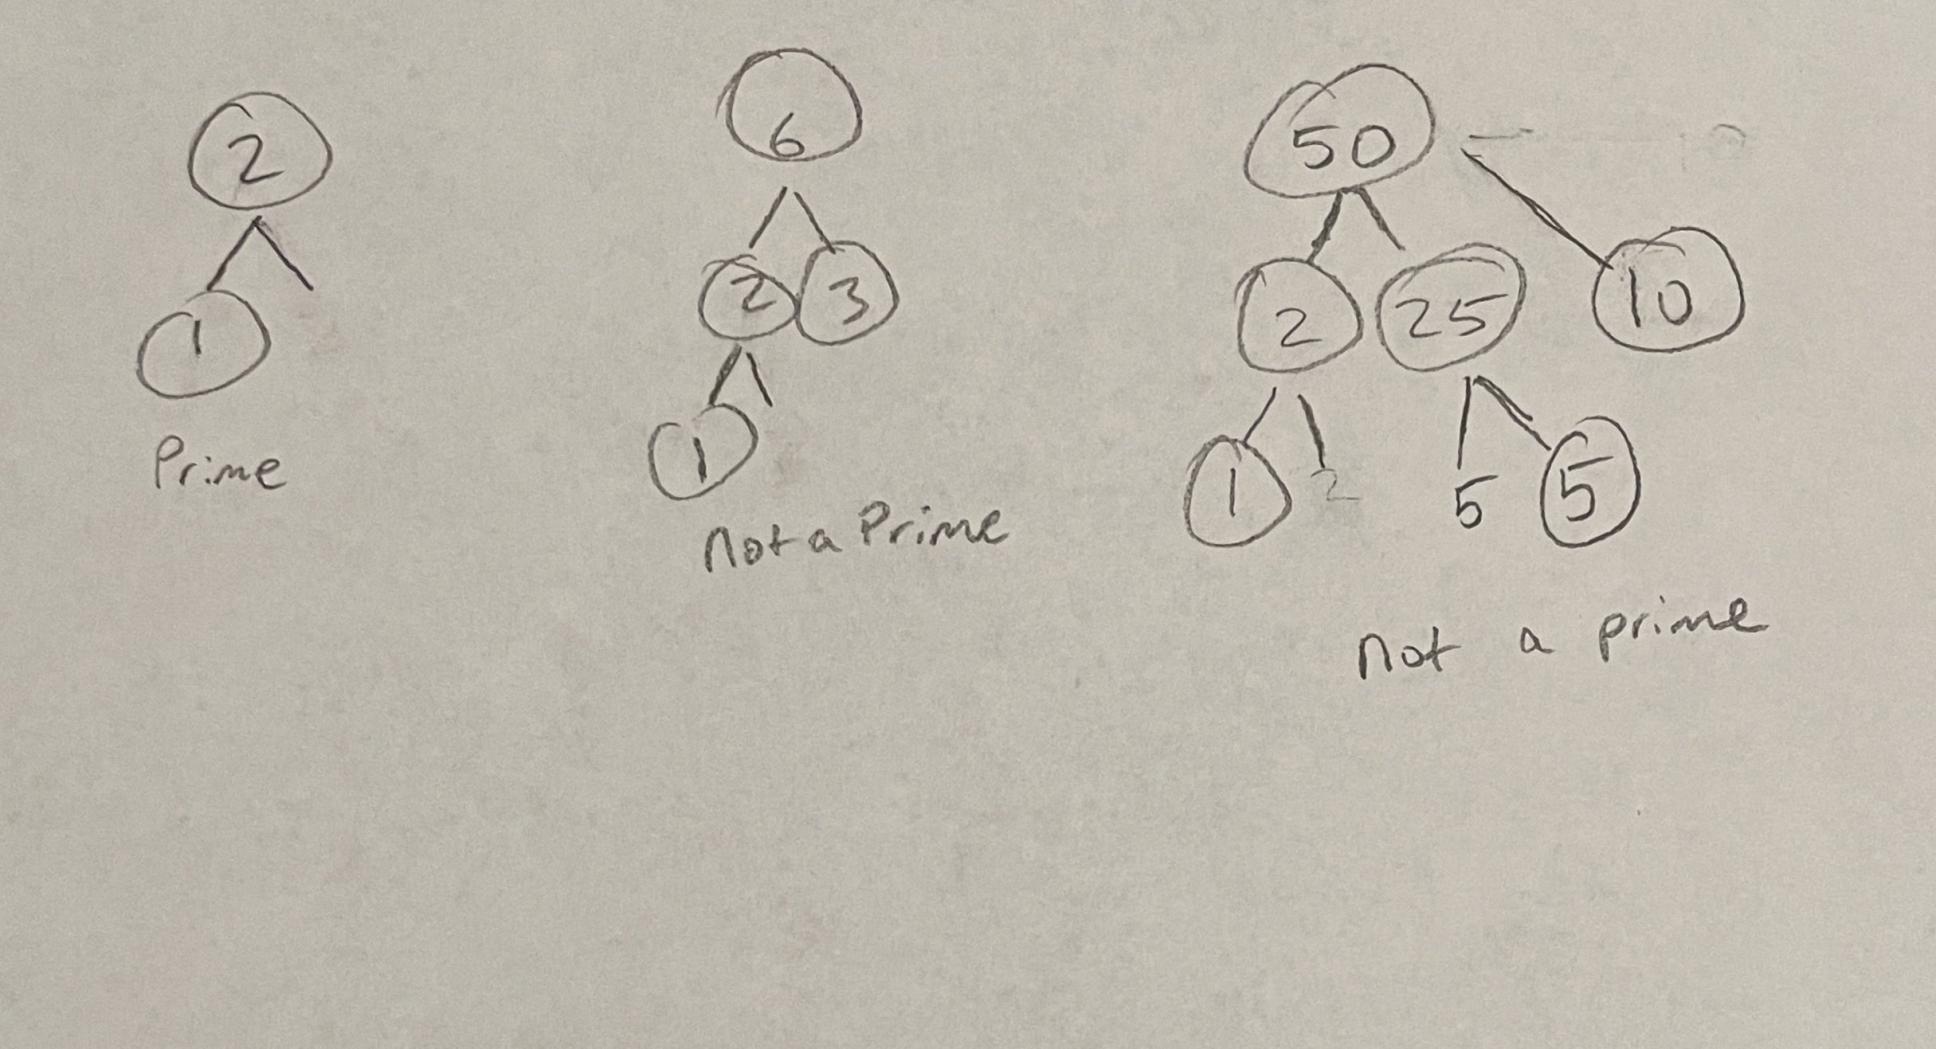 2
1
Prime
6
2 3
1
Not a Prime
50
2 25 10
1 2 5 5
not a prime